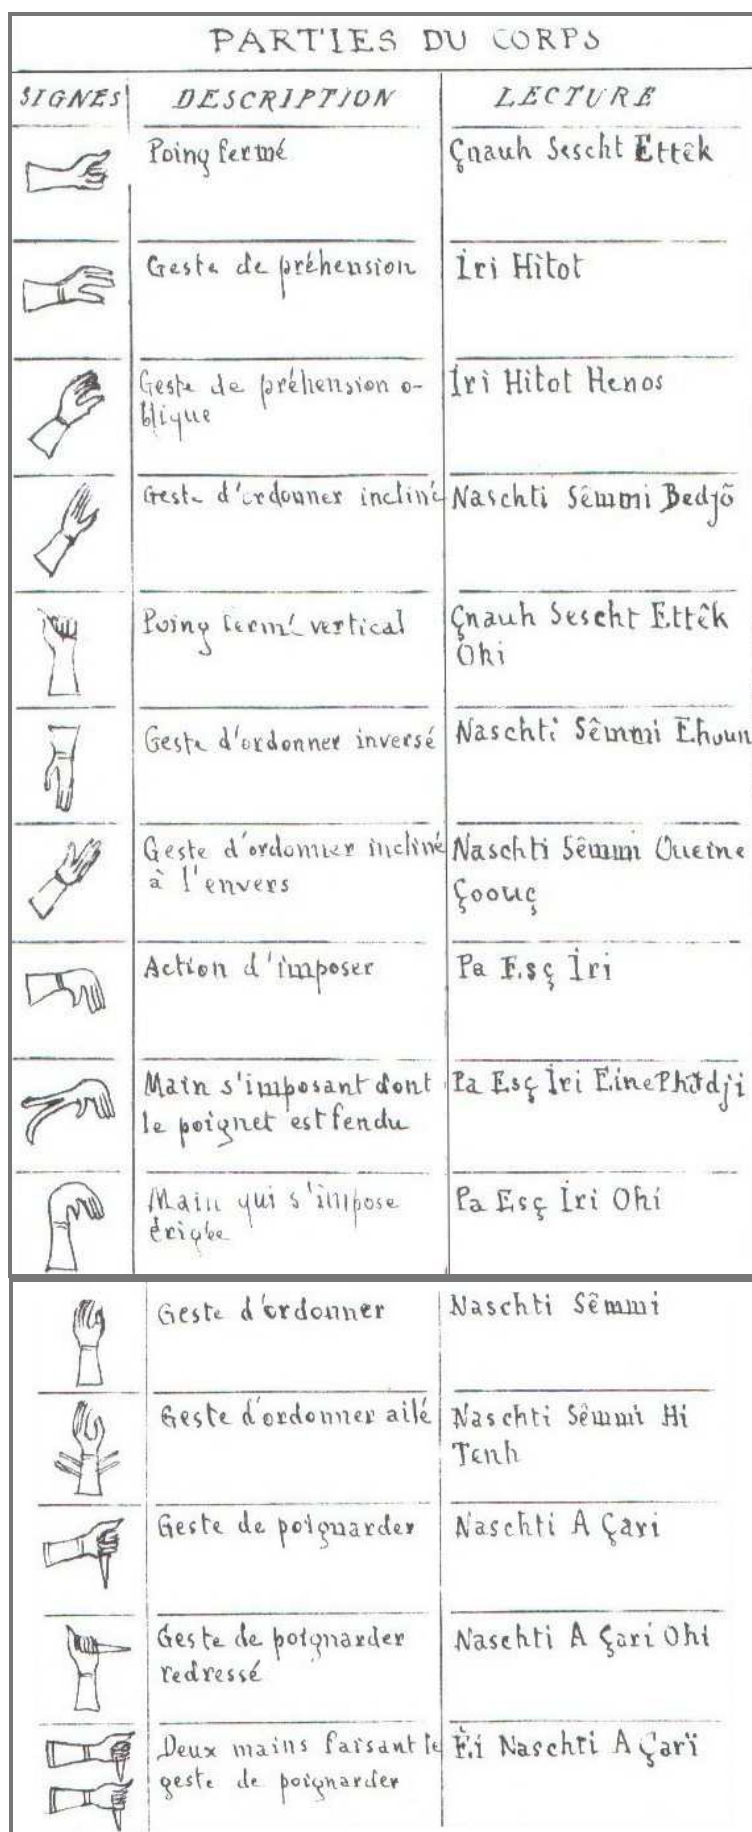 PARTIES DU CORPS
SIGNES DESCRIPTION LECTURE
Poing fermé Çnauh Sescht Ettêk
Geste de préhension Iri Hitot
Geste de préhension o- Iri Hitot Henos
blique
Geste d'ordonner incliné Naschti Sêmmi Bedjõ
Poing fermé vertical Çnauh Sescht Ettêk
Ohi
Geste d'ordonner inversé Naschti Sêmmi Ehoun
Geste d'ordonner incliné Naschti Sêmmi Oueine
à l'envers Çoouç
Action d'imposer Pa Esç Iri
Main s'imposant dont Pa Esç Iri Eine
le poignet est fendu
Main qui s'impose Pa Esç Iri Ohi
érigée
Geste d'ordonner Naschti Sêmmi
Geste d'ordonner ailé Naschti Sêmmi Hi
Tenh
Geste de poignarder Naschti A Çari
Geste de poignarder Naschti A Çari Ohi
redressé
Deux mains faisant le Êi Naschti A Çari
geste de poignarder